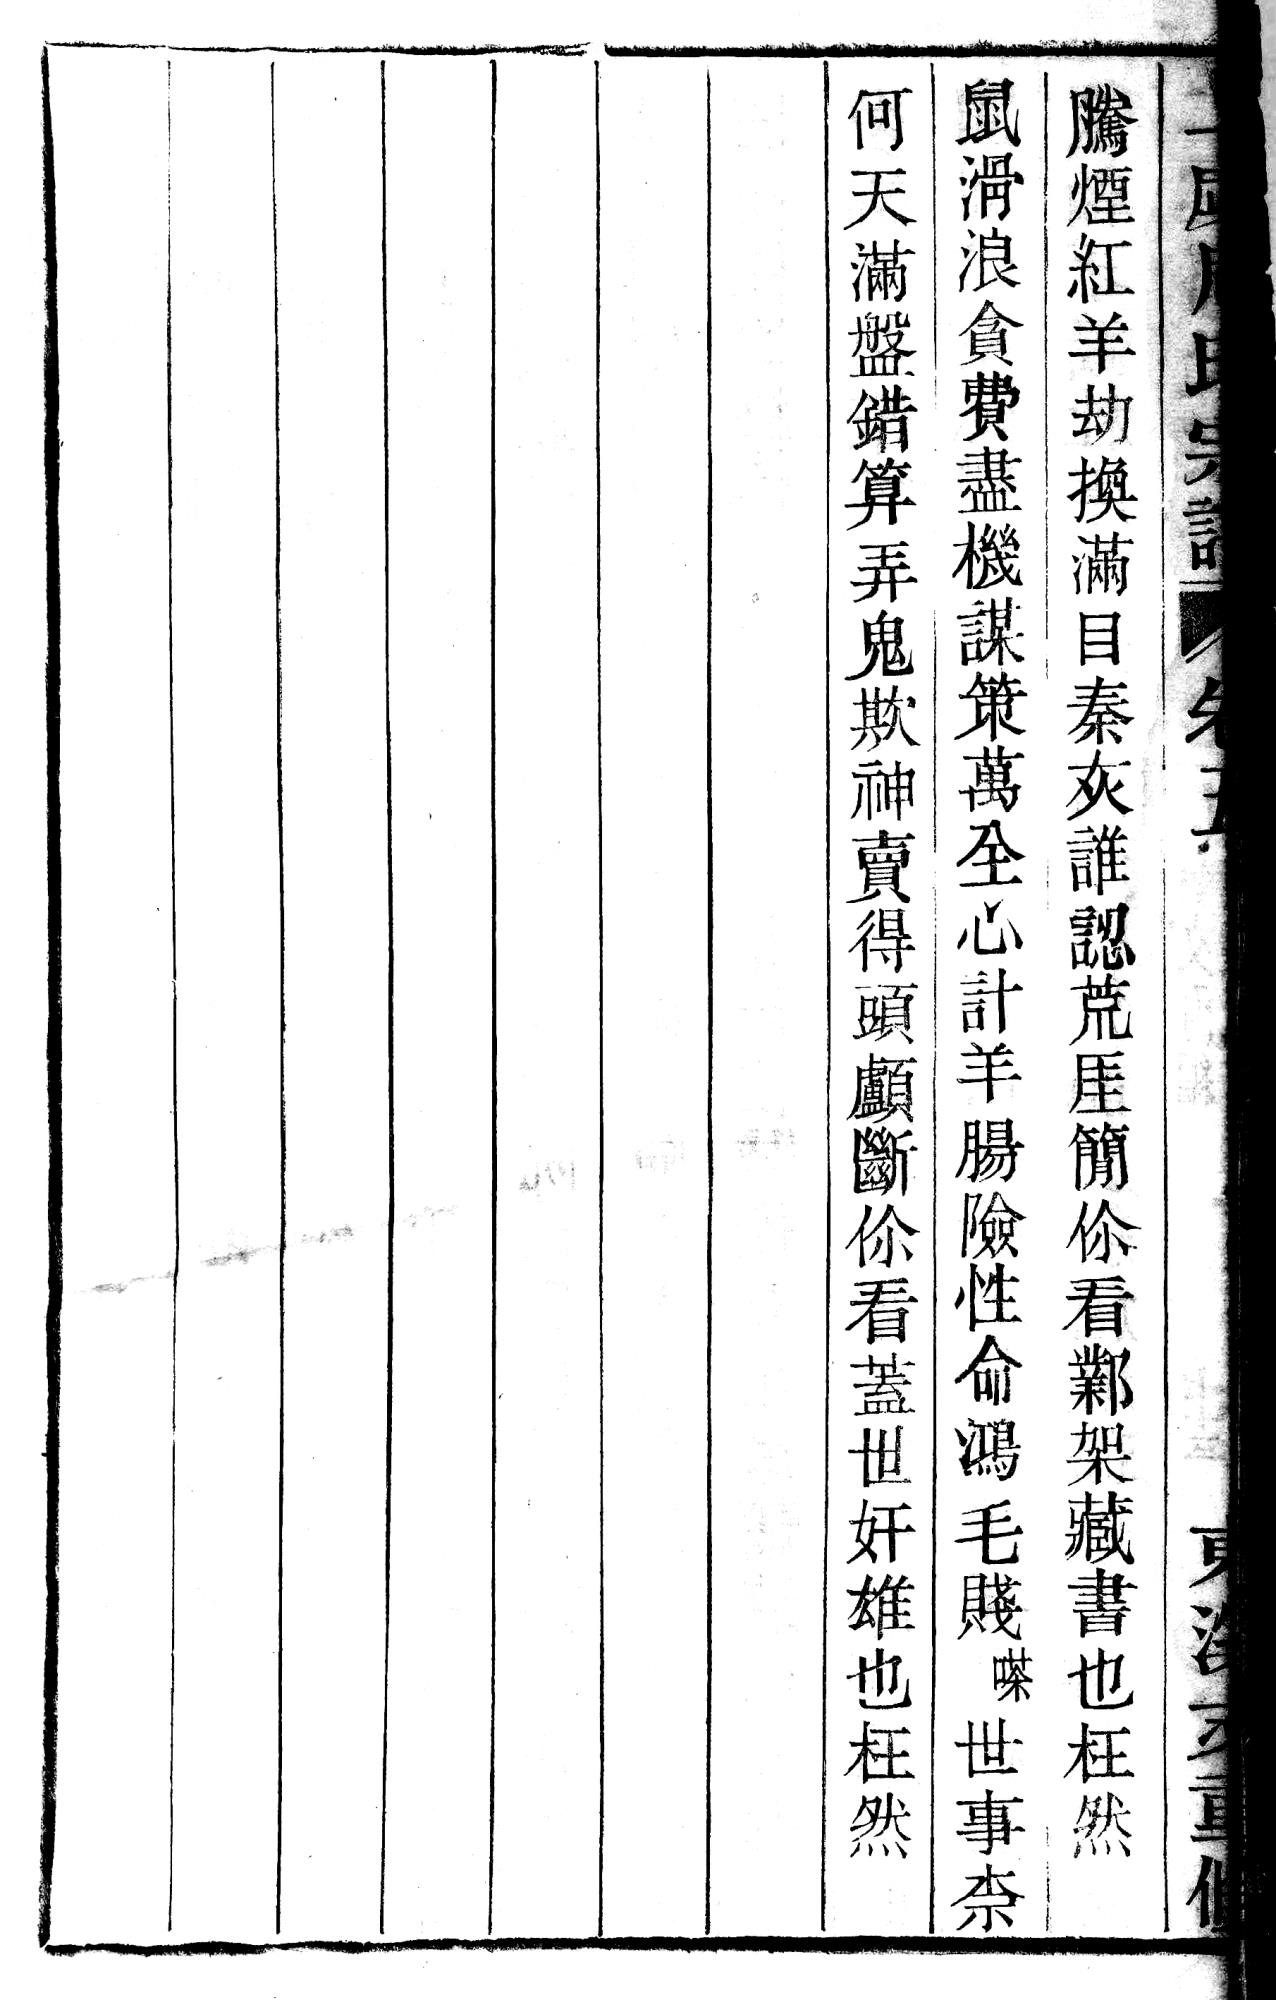 氏宗譜 卷五 重修
騰煙紅羊劫換滿目秦灰誰認荒厓簡伱看鄴架藏書也枉然
鼠滑浪貪費盡機謀策萬全心計羊腸險性命鴻毛賤嗏世事柰
何天滿盤錯算弄鬼欺神賣得頭顱斷伱看蓋世奸雄也枉然